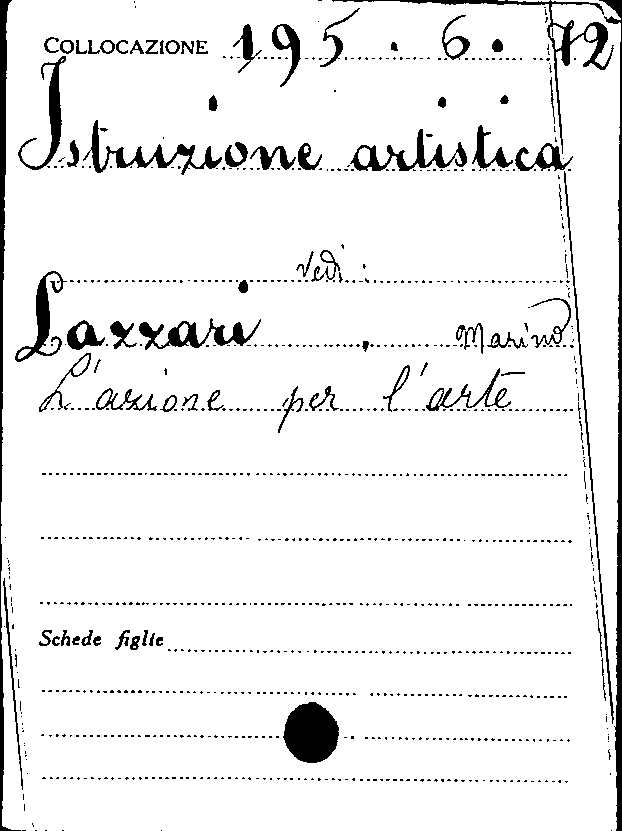 COLLOCAZIONE 195.6.72
Istruzione artistica
Vedi:
Lazzari, Marino
L'azione per l'arte
Schede figlie